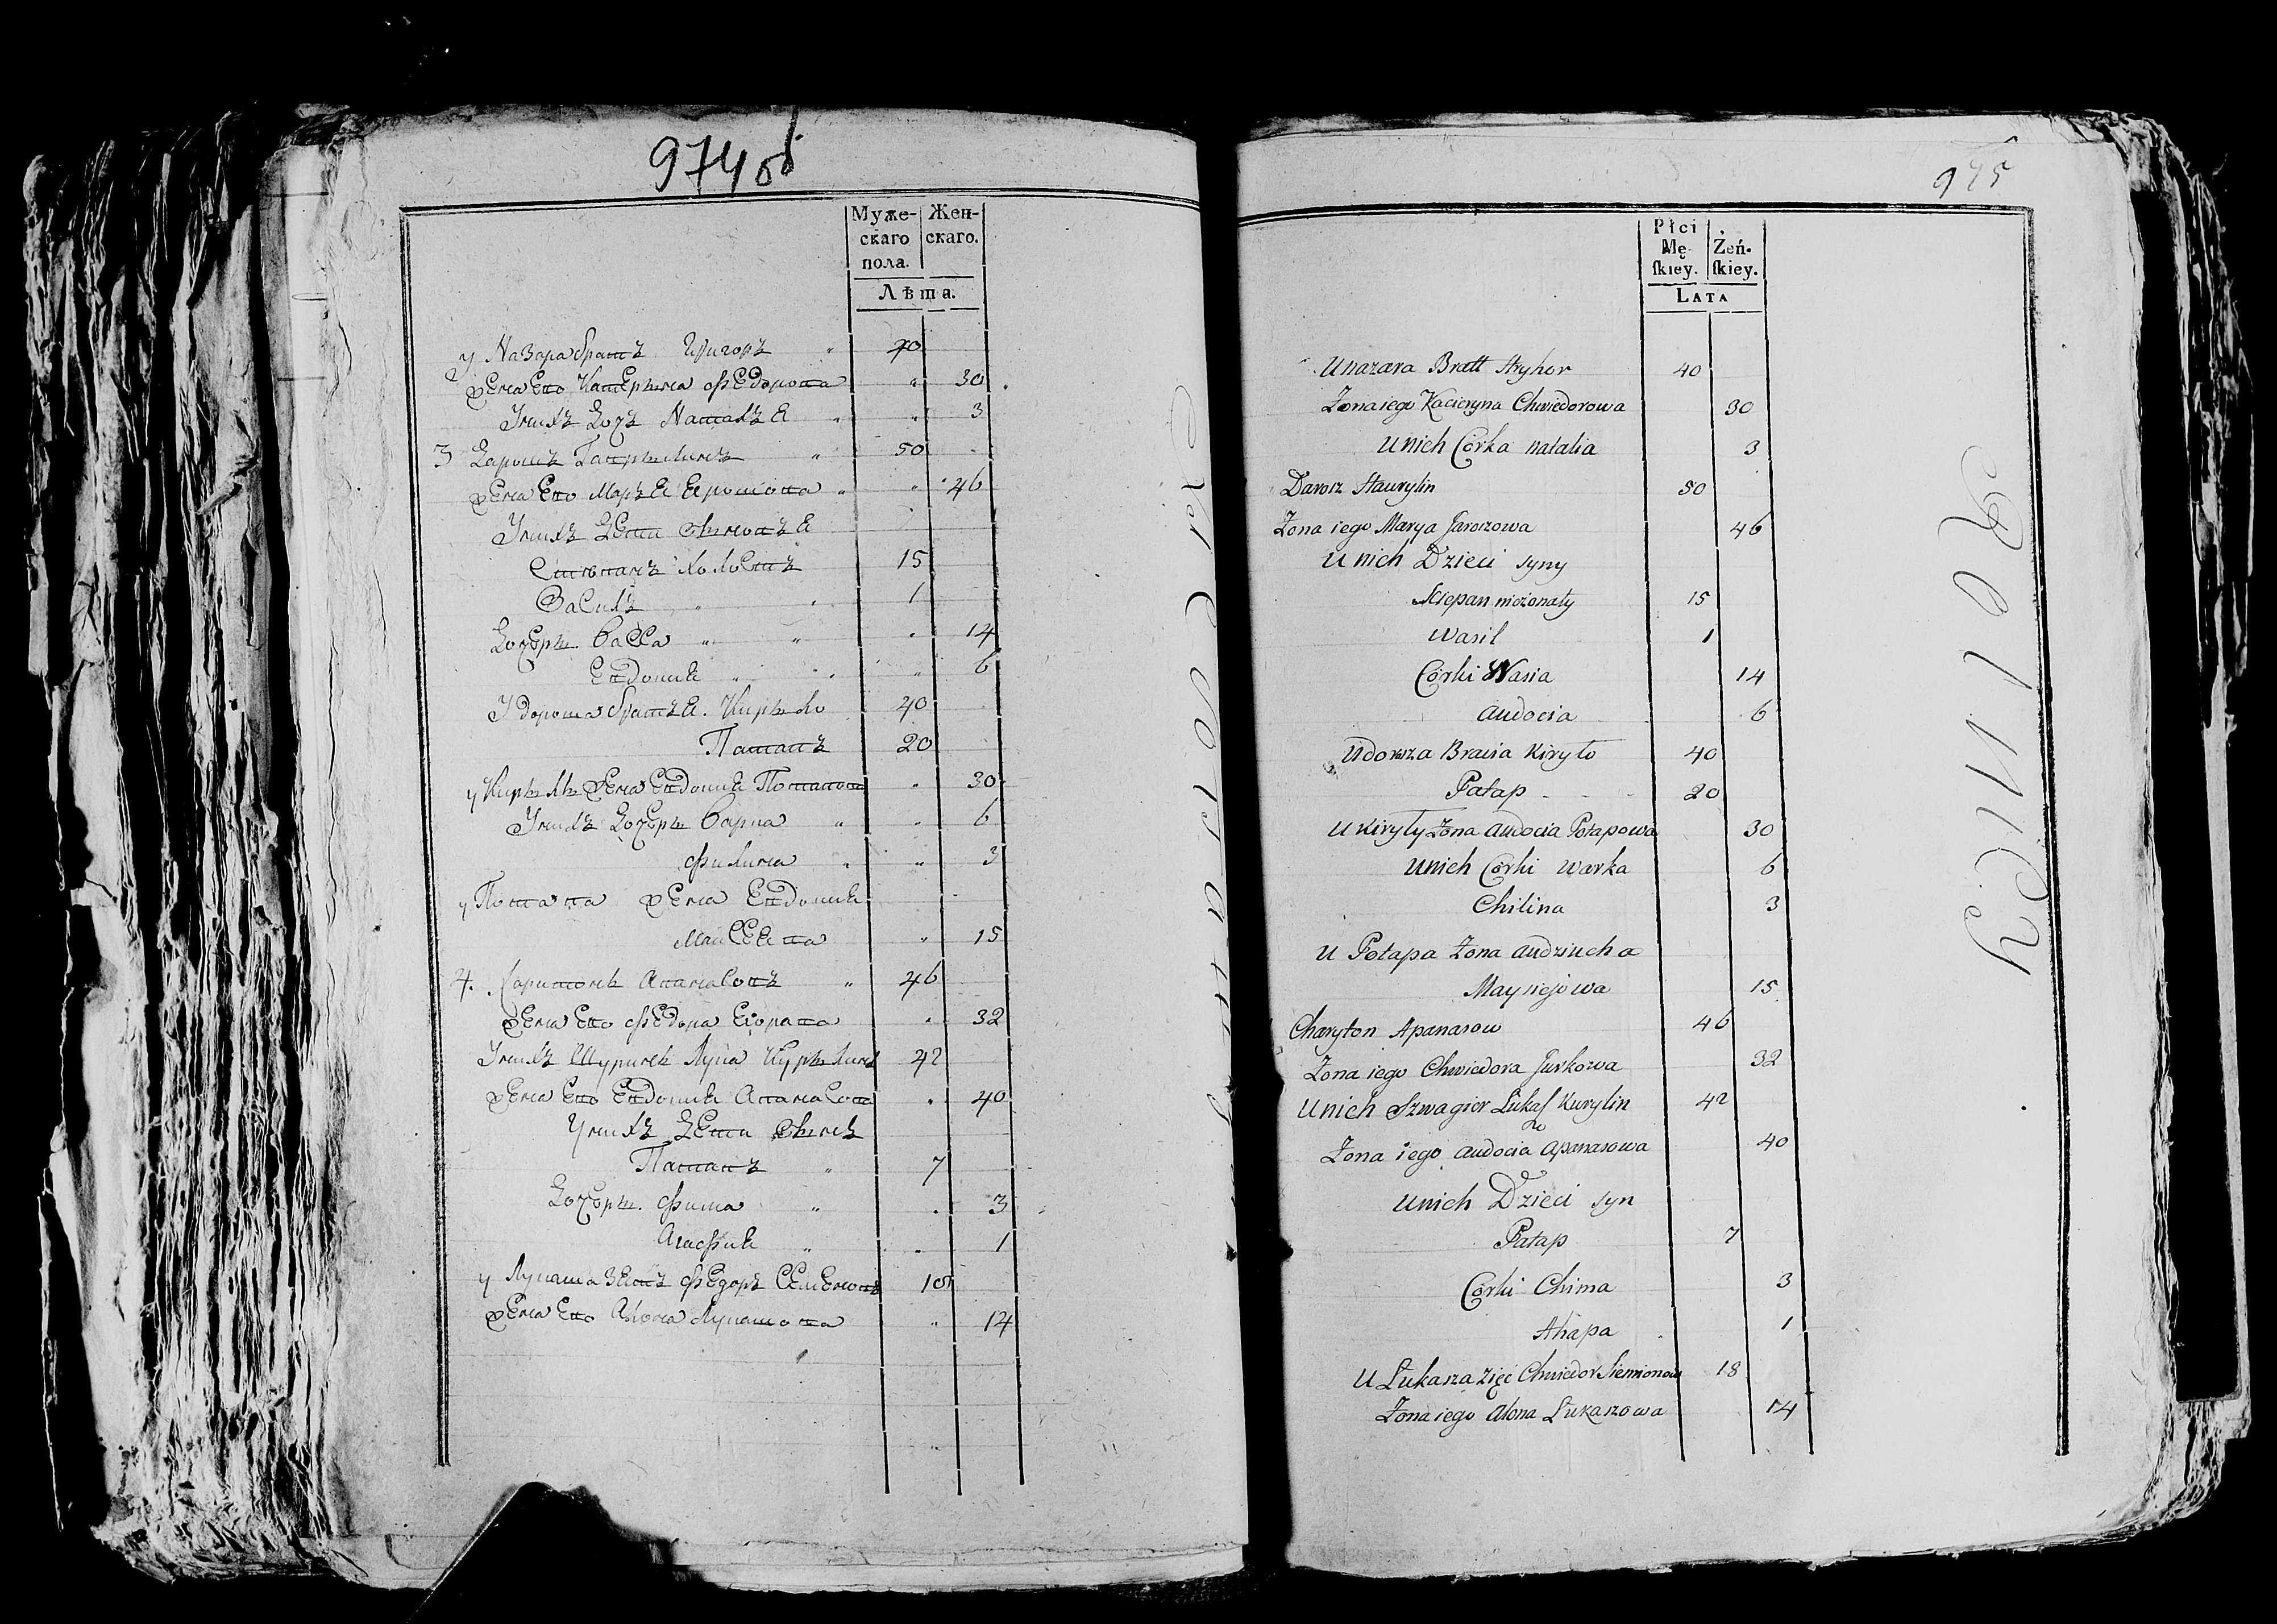 974 об
Муже-
скаго
пола.
Жен-
скаго.
Лѣта.
у Назара братъ Григоръ " 40
жена ево Катерина Федорова " 30
У нихъ дочь Наталья " " 3
3 Дарошъ Гаврилинъ " 50
жена ево Марья Ярошова " " 46
У нихъ дети сыновья
Степанъ холостъ 15
Василь " 1
Дочери Васса " " 14
Евдокия " " 6
У дороша братья Кирило 40
Патапъ 20
у Кирилы жена Евдокия Потапова " 30
У нихъ дочери Варка " " 6
Филина " " 3
у Потапа жена Евдокия
Майсеева " 15
4. Харитонъ Апанасовъ " 46
жена ево Федора Юркова " 32
У нихъ Шуринъ Лука Курилинъ 42
жена ево Евдокия Апанасова " 40
У нихъ дети сынъ
Патапъ " 7
Дочери Фима " " 3
Агафия " " 1
у Лукаша зять Федоръ Семеновъ 18
жена ево Алена Лукашова " 14
975
Płci
Mę-
ſkiey.
Żeń-
ſkiey.
Lata
U nazara Bratt Hryhor 40
Żona iego Kacieryna Chwiedorowa 30
U nich Córka natalia 3
Darosz Hawrylin 50
Żona iego Marya Jaroszowa 46
U nich Dzieci syny
Sciepan nieżonaty 15
Wasil 1
Córki Wasia 14
Audocia 6
U dorosza Bracia Kiryło 40
Patap 20
U Kiryły Żona Audocia Potapowa 30
U nich Córki Warka 6
Chilina 3
U Potapa Żona Audziucha
Maysiejowa 15
Charyton Apanasow 46
Żona iego Chwiedora Jurkowa 32
U nich Szwagier Łukaſz Kurylin 42
Żona iego Audocia Apanasowa 40
U nich Dzieci syn
Patap 7
Córki Chima 3
Ahapa 1
U Łukasza Zięć Chwiedor Siemionow 18
Żona iego Alona Łukaszowa 14